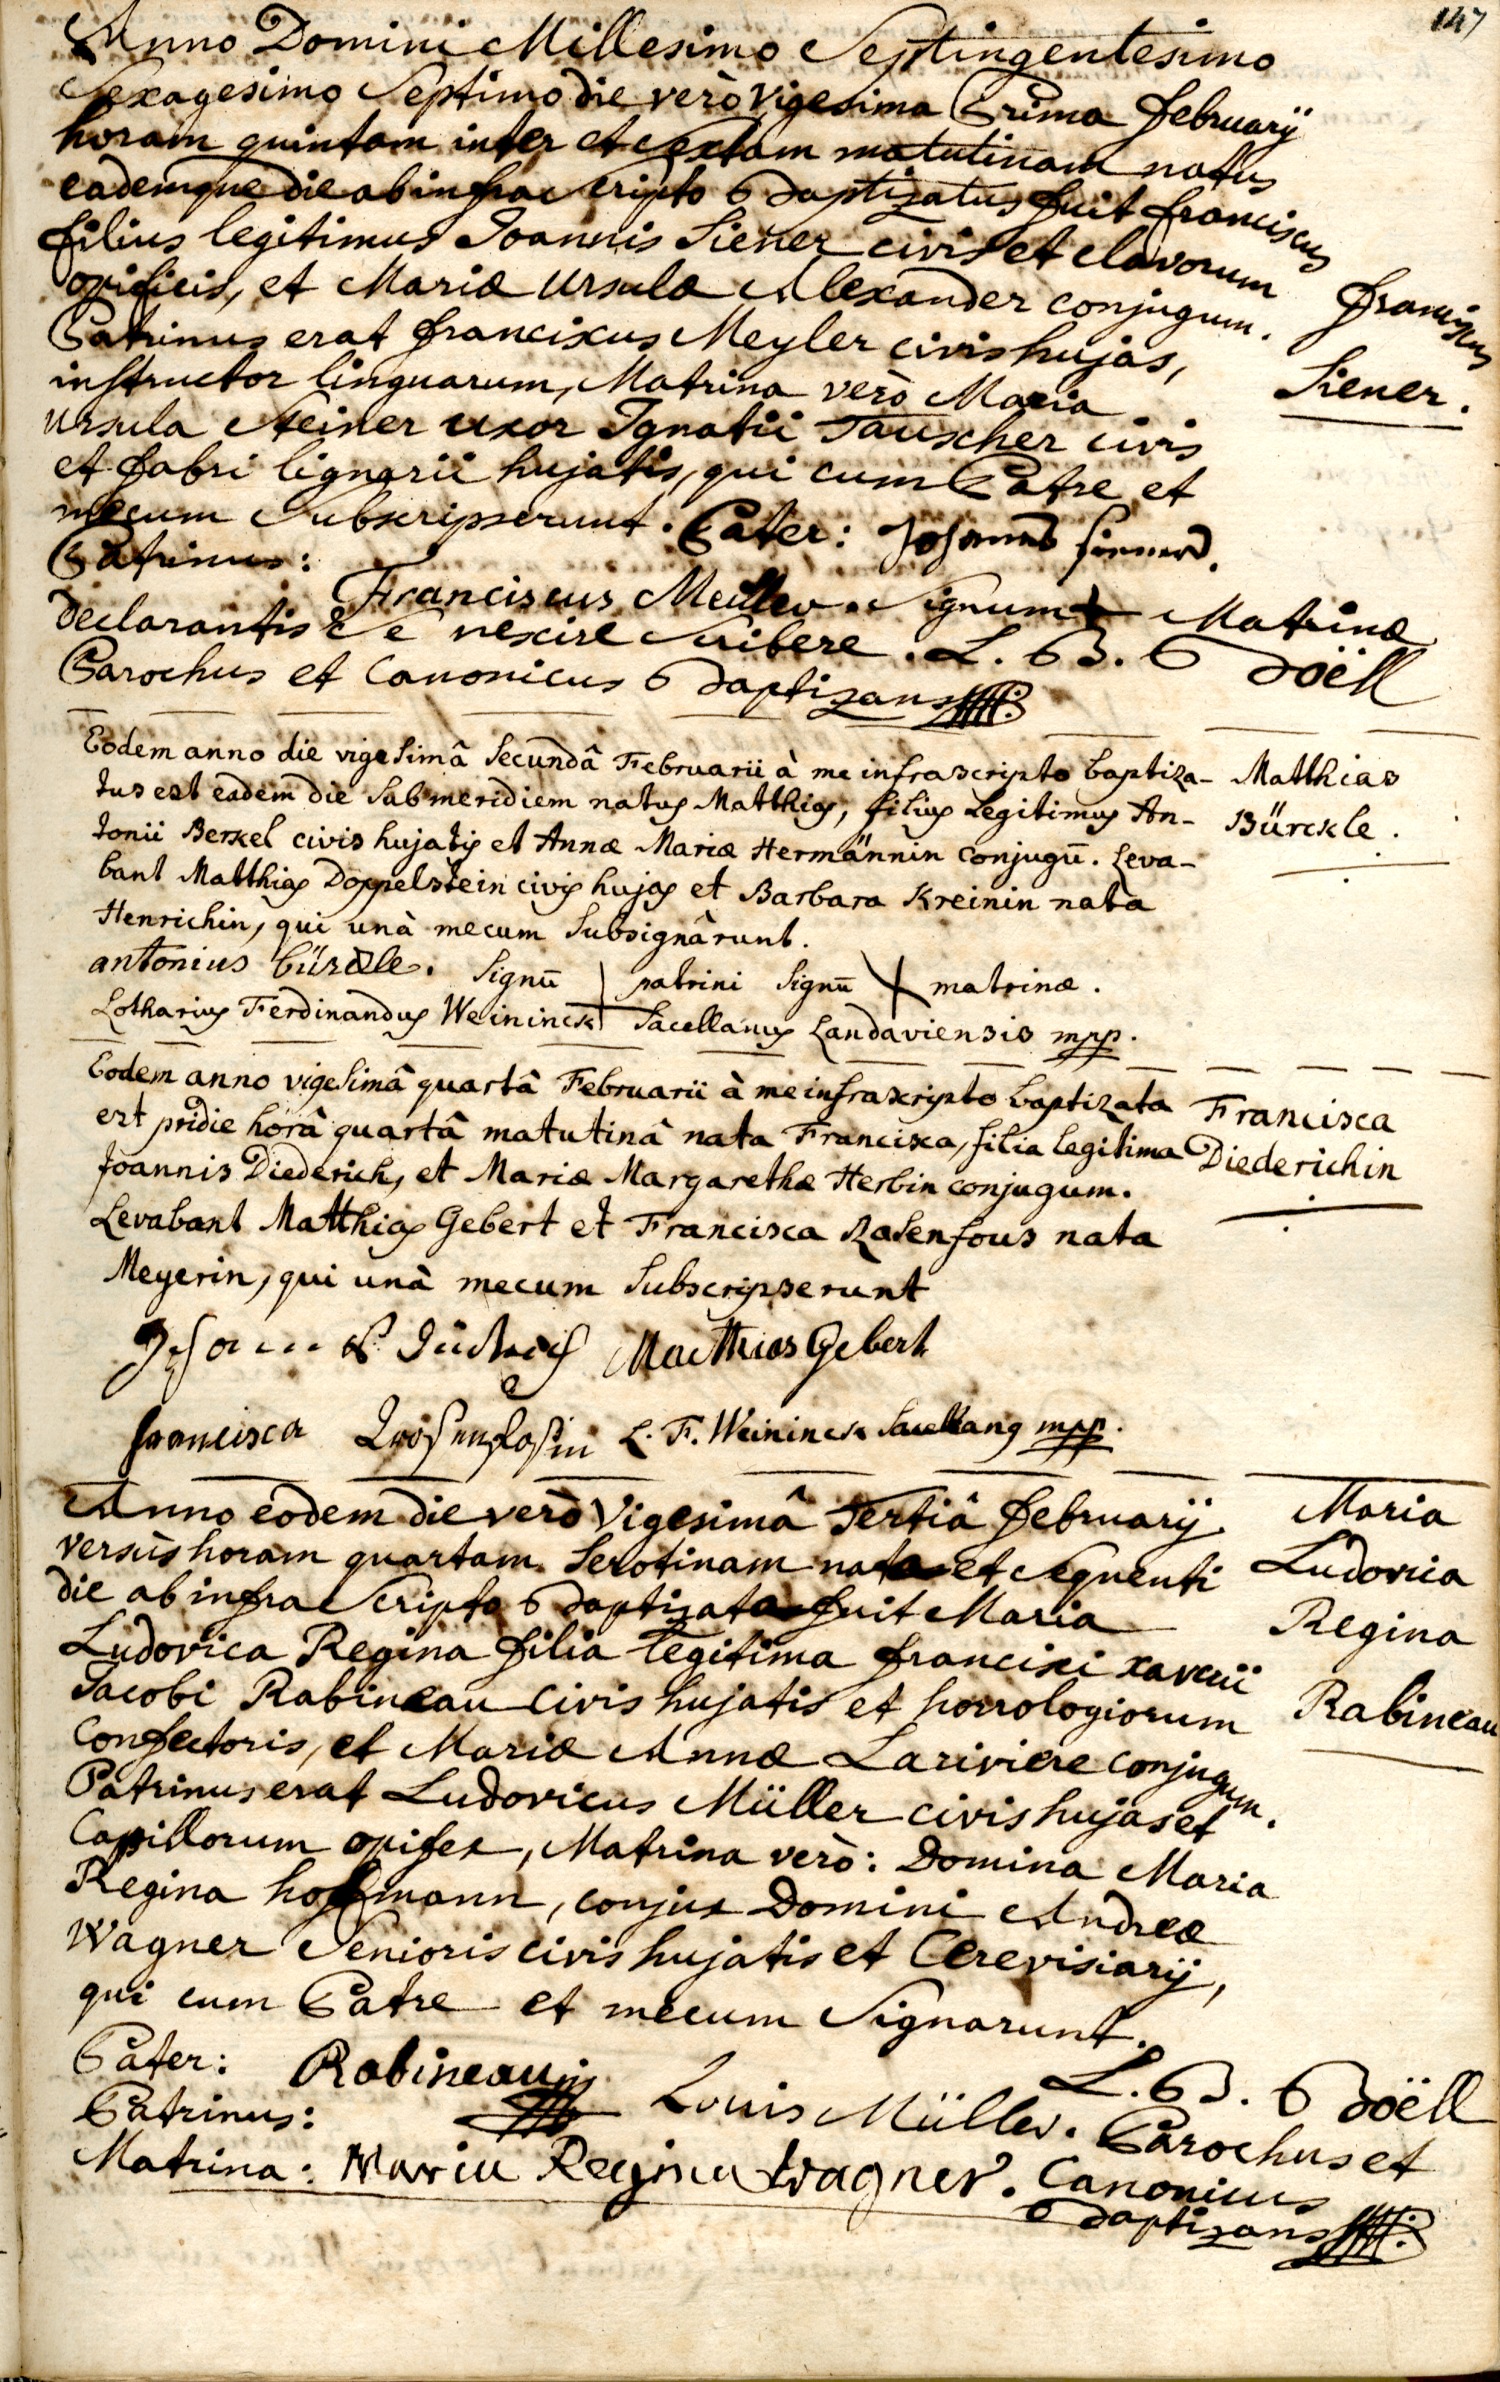 147
Anno Domini Millesimo Septingentesimo
Sexagesimo Septimo die verò Vigesima Prima February
horam quintam inter et Sextam matutinam natus
eademque die ab infra Scripto Baptizatus fuit franciscus
filius legitimus Joannis Siener civis et clavorum
opificis, et Mariæ Ursulæ Alexander conjugum.
Franciscus
Siener.
Patrinus erat franciscus Meyler civis hujas,
instructor linguarum, Matrina verò Maria
Ursula Steiner uxor Ignatii Tauscher civis
et fabri lignarii hujatis, qui cum Patre et
mecum Subscripserunt. Pater: Johannes
Patrinus:
Franciscus Meüller. Signum + Matrinæ
declarantis Se nescire Scribere. L. B. Böëll
Parochus et Canonicus Baptizans
Eodem anno die vigesimâ secundâ Februarii à me infrascripto baptiza-
tus est eâdem die sub meridiem natus Matthias, filius legitimus An-
tonii Berkel civis hujatis et Annæ Mariæ Hermännin conjugū. Leva-
bant Matthias Doppelstein civis hujas et Barbara Kreinin nata
Henrichin, qui unà mecum subsignârunt.
Matthias
Bürckle.
antonius bürckle. Signū + patrini Signū + matrinæ.
Lotharius Ferdinandus Weininck Sacellanus Landaviensis mpp.
Eodem anno vigesimâ quartâ Februarii à me infrascripto baptizata
est pridie horâ quartâ matutinâ nata Francisca, filia legitima
Joannis Diederich, et Mariæ Margarethæ Herbin conjugum.
Levabant Matthias Gebert et Francisca Rasenfous nata
Meyerin, qui unà mecum subscripserunt
Francisca
Diederichin
Matthias Gebert
francisca L. F. Weininck Sacellanus mpp.
Anno eodem die verò Vigesimâ Tertiâ february
versùs horam quartam Serotinam nata et Sequenti
die ab infra Scripto Baptizata fuit Maria
Ludovica Regina filia legitima francisci xaverii
Jacobi Rabineau civis hujatis et horrologiorum
Confectoris, et Mariæ Annæ Lariviere conjugum.
Maria
Ludovica
Regina
Rabineau
Patrinus erat Ludovicus Müller civis hujas et
Capillorum opifex, Matrina verò: Domina Maria
Regina hoffmann, conjux Domini Andreæ
Wagner Senioris civis hujatis et Cerevisiarij,
qui cum Patre et mecum Signarunt.
Pater: Rabineau
Patrinus: Louis Müller.
Matrina: Maria Regina Wagner.
L. B. Böëll
Parochus et
Canonicus
Baptizans